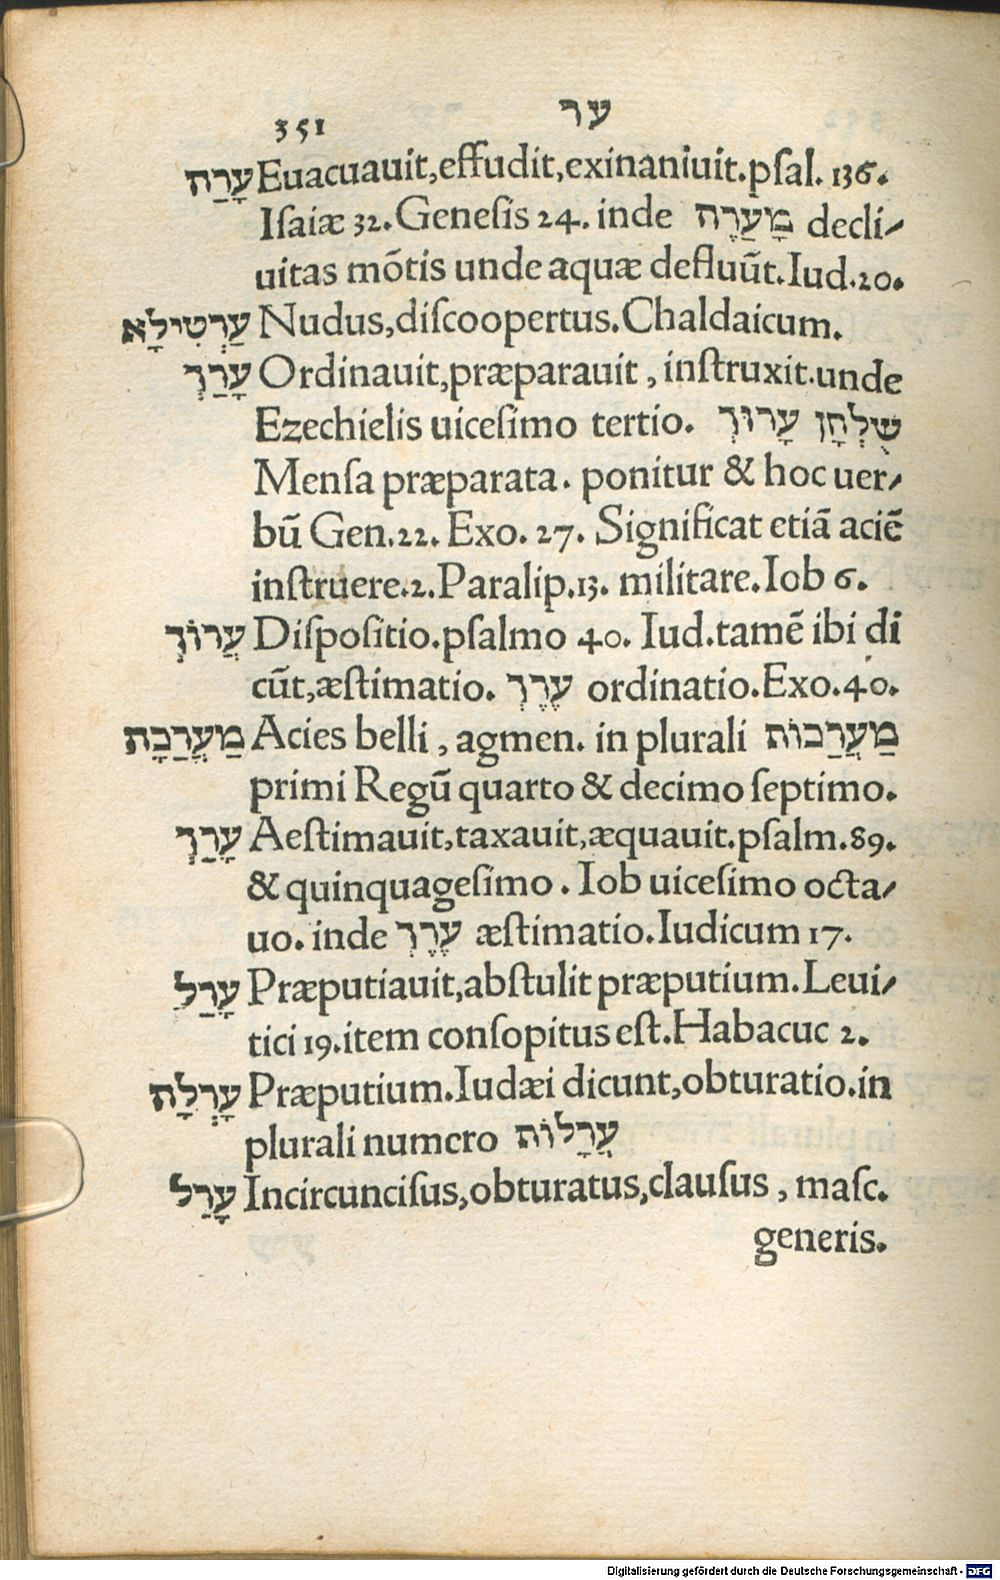 351 ער
עָרַח Euacuauit,effudit,exinaniuit.psal. 136.
Isaiæ 32. Genesis 24. inde מַעֲרֶה decli⸗
uitas mõtis unde aquæ defluũt. Iud.20.
עַרְטִילָא Nudus,discoopertus. Chaldaicum.
עָרַךְ Ordinauit,præparauit, instruxit.unde
Ezechielis uicesimo tertio. שֻׁלְחָן עָרוּךְ
Mensa præparata. ponitur & hoc uer⸗
bũ Gen.22. Exo. 27. Significat etiã aciẽ
instruere.2. Paralip.13. militare. Iob 6.
עֲרוֹךְ Dispositio.psalmo 40. Iud.tamẽ ibi di
cũt,æstimatio. עֶרֶךְ ordinatio. Exo.40.
מַעֲרַכָת Acies belli, agmen. in plurali מַעֲרַכוֹת
primi Regũ quarto & decimo septimo.
עָרַךְ Aestimauit,taxauit,æquauit.psalm.89.
& quinquagesimo. Iob uicesimo octa⸗
uo. inde עֶרֶךְ æstimatio. Iudicum 17.
עָרַל Præputiauit,abstulit præputium. Leui⸗
tici 19.item consopitus est. Habacuc 2.
עָרְלָה Præputium. Iudæi dicunt,obturatio.in
plurali numero עֲרָלוֹת
עָרַל Incircuncisus,obturatus,clausus, masc.
generis.
Digitalisierung gefördert durch die Deutsche Forschungsgemeinschaft - DFG